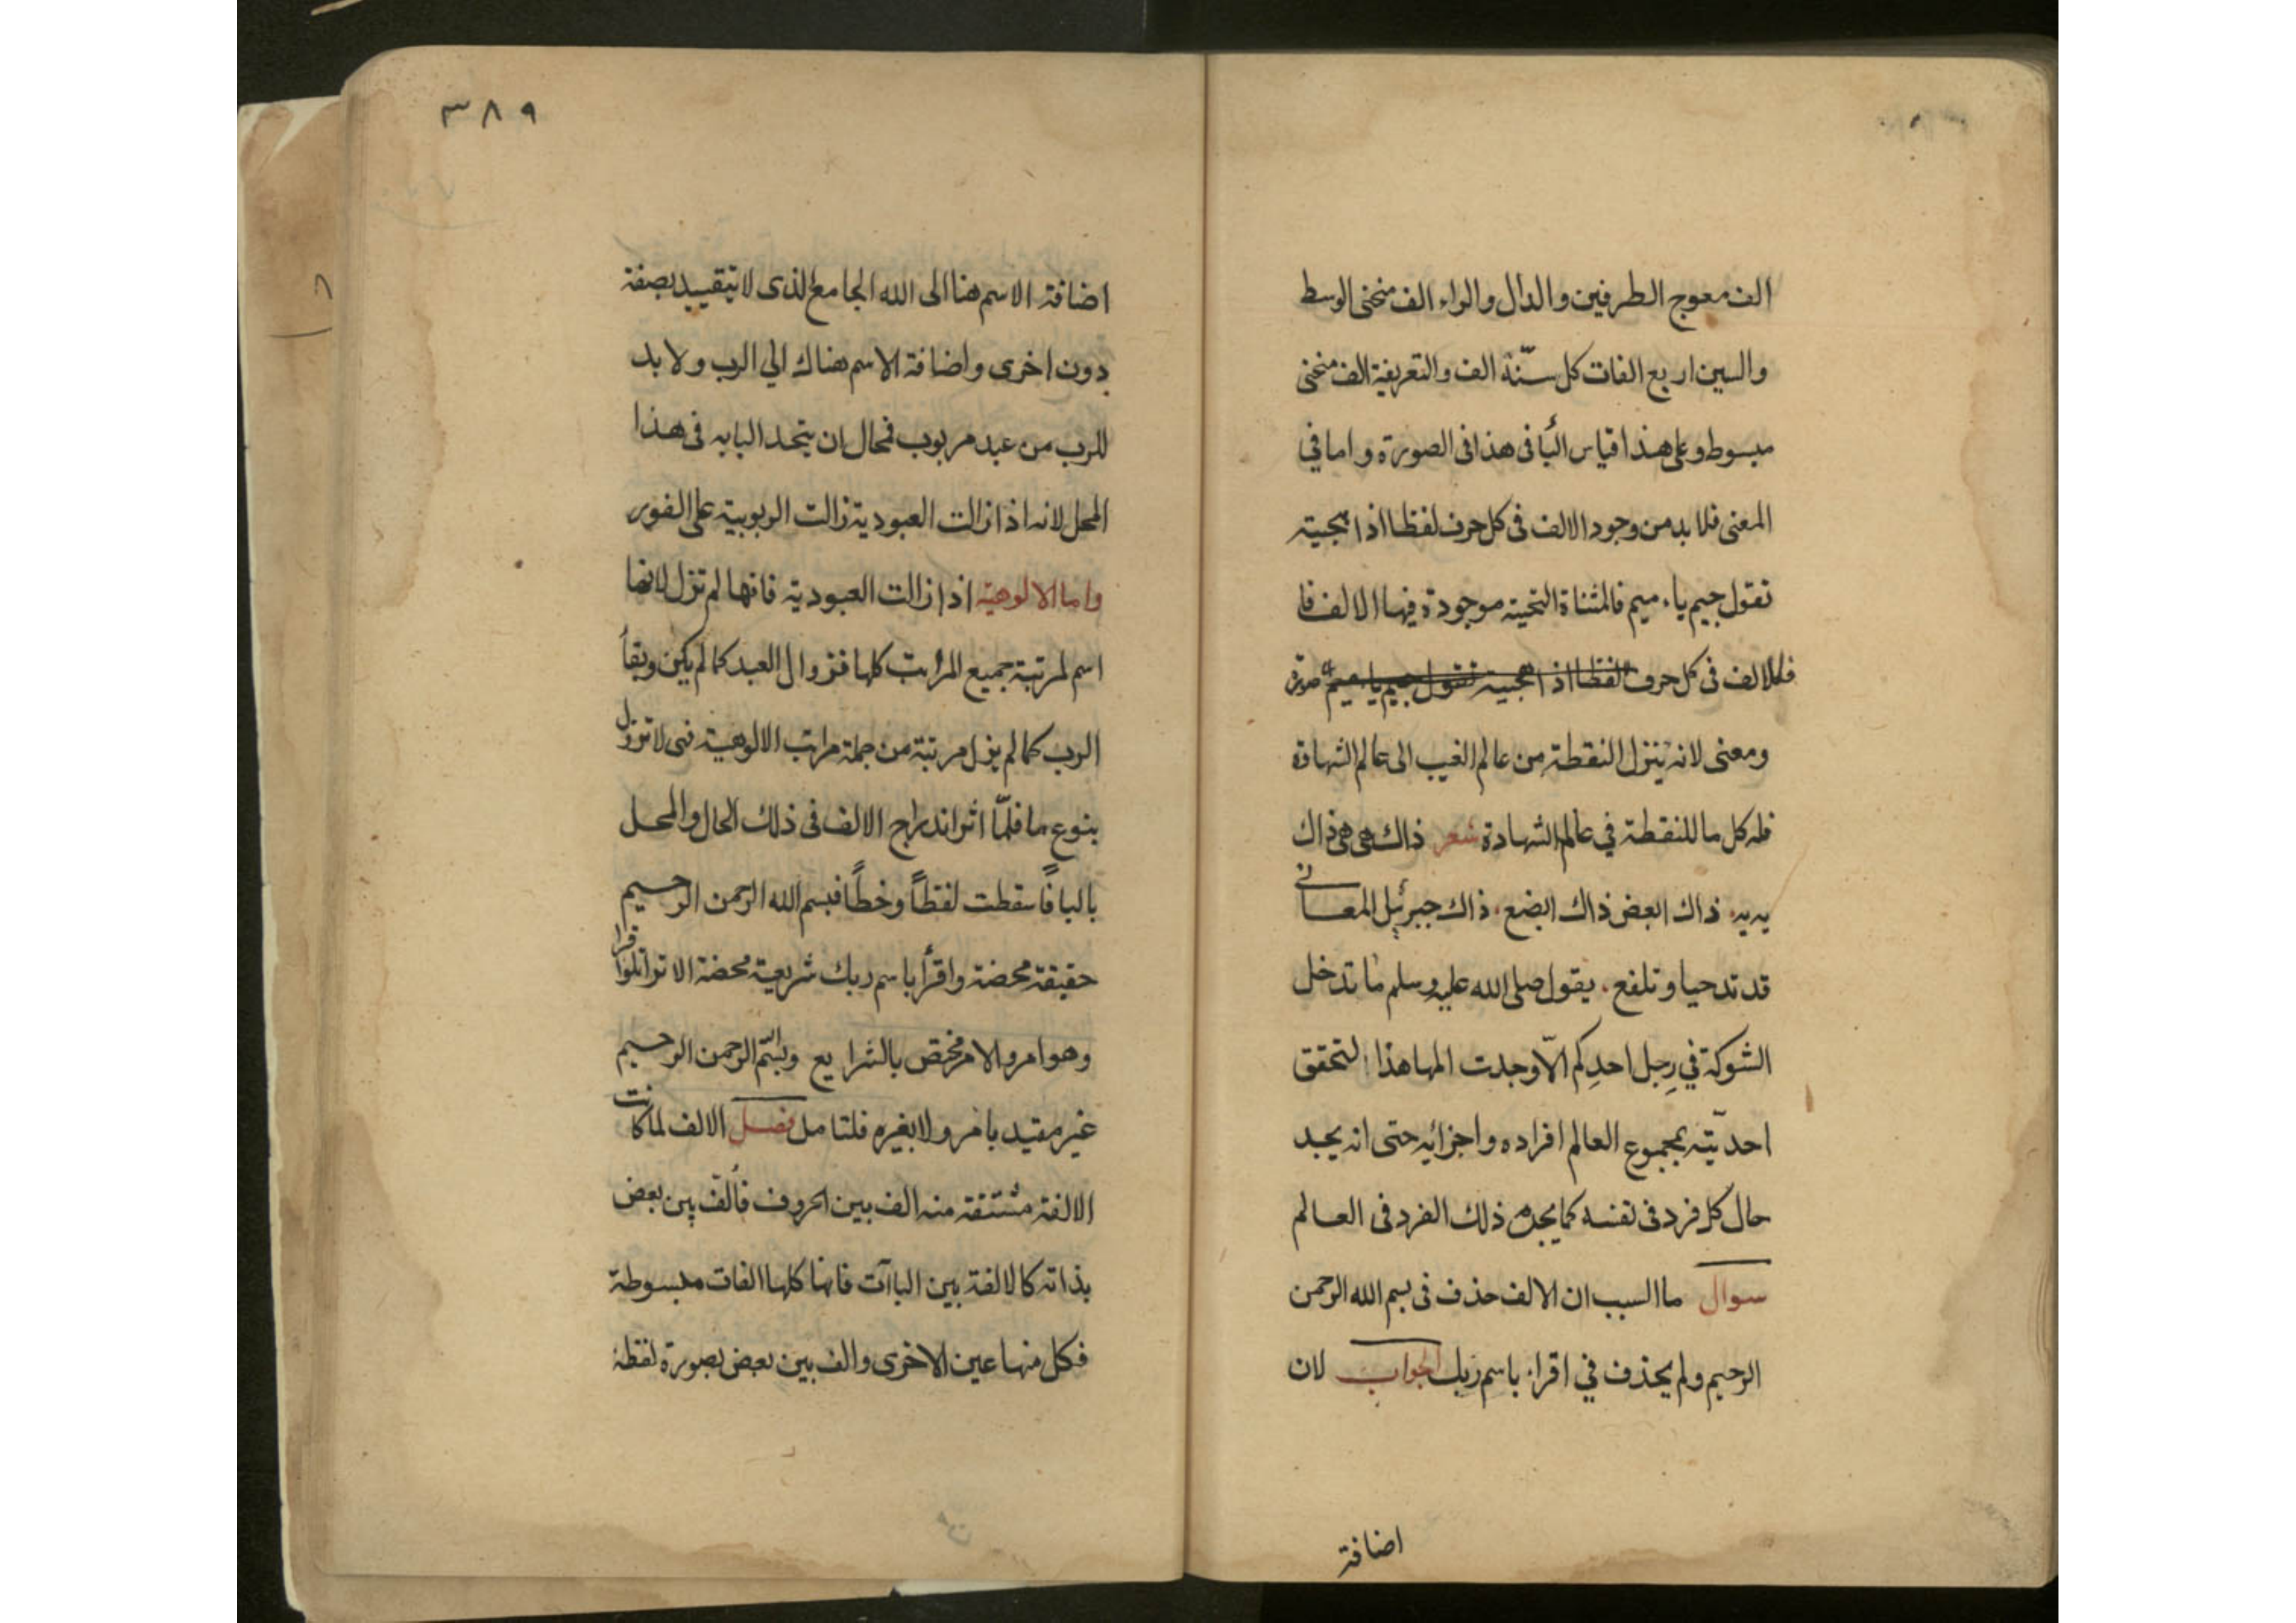 الف معوج الطرفين والدال والراء الف منحنى الوسط
والسين اربع الفات كل سنّة الف والتعريفة الف منحنى
مبسوط وعلى هذا قياس البا فى هذا فى الصورة واما في
المعنى فلا بد من وجود الالف فى كل حرف لفظا اذا هجيته
تقول جيم ياء ميم فالمثناة التحيته موجودة فيها الالف فا
فكالالف فى كل حرف لفظا اذا هجيته تقول جيم يا ميم صورة
ومعنى لانه ينزل النقطة من عالم الغيب الى عالم الشهادة
فله كل ما للنقطة في عالم الشهادة شعر ذاك هى هى ذاك
يديه ذاك ابعض ذاك ابضع ذاك جبرئيل المعانى
قد تدحيا وتلفع يقول صلى الله عليه وسلم ما تدخل
الشوكة في رِجل احدِكم الّا وجدت المها هذا لتحقق
احديّته بمجموع العالم افراده واجزائه حتى انه يجد
حال كل فرد فى نفسه كما يجده ذلك الفرد فى العالم
سوال ما السبب ان الالف حذف فى بسم الله الرحمن
الرحيم ولم يحذف في اقرا باسم ربك الجواب لان
اضافة
٣٨٩
اضافة الاسم هنا الى الله الجامع الذى لا يتقييد بصفة
دون اخرى واضافة الاسم هناك الي الرب ولا بد
للرب من عبد مربوب فمحال ان يتحد البابه فى هذا
المحل لانه اذا زالت العبودية زالت الربوبية على الفور
واما الالوهية اذا زالت العبودية فانها لم تزل لانها
اسم لمرتبة جميع المراتب كلها فزوال العبد كما لم يكن وبقاً
الرب كما لم يزل مرتبة من جملة مراتب الالوهية فهى لا تزول
بنوع ما فلمّا اثر اندراج الالف فى ذلك الحال والمحل
بالبا فاسقطت لفظاً وخطاً فبسم الله الرحمن الرحيم
حقيقة محضة واقرأ باسم ربك شريعة محضة الا تراتلوا قرا
وهو امر والامر مختص بالشرايع وبسم الرحمن الرحيم
غير مقيد بامر ولا بغيره فلتامل فصل الالف لما كانت
الالفة مشتقة منه الف بين الحروف فألف بين بعض
بذاته كالالفة بين الباآت فانها كلها الفات مبسوطة
فكل منها عين الاخرى والف بين بعض بصورة لفظة